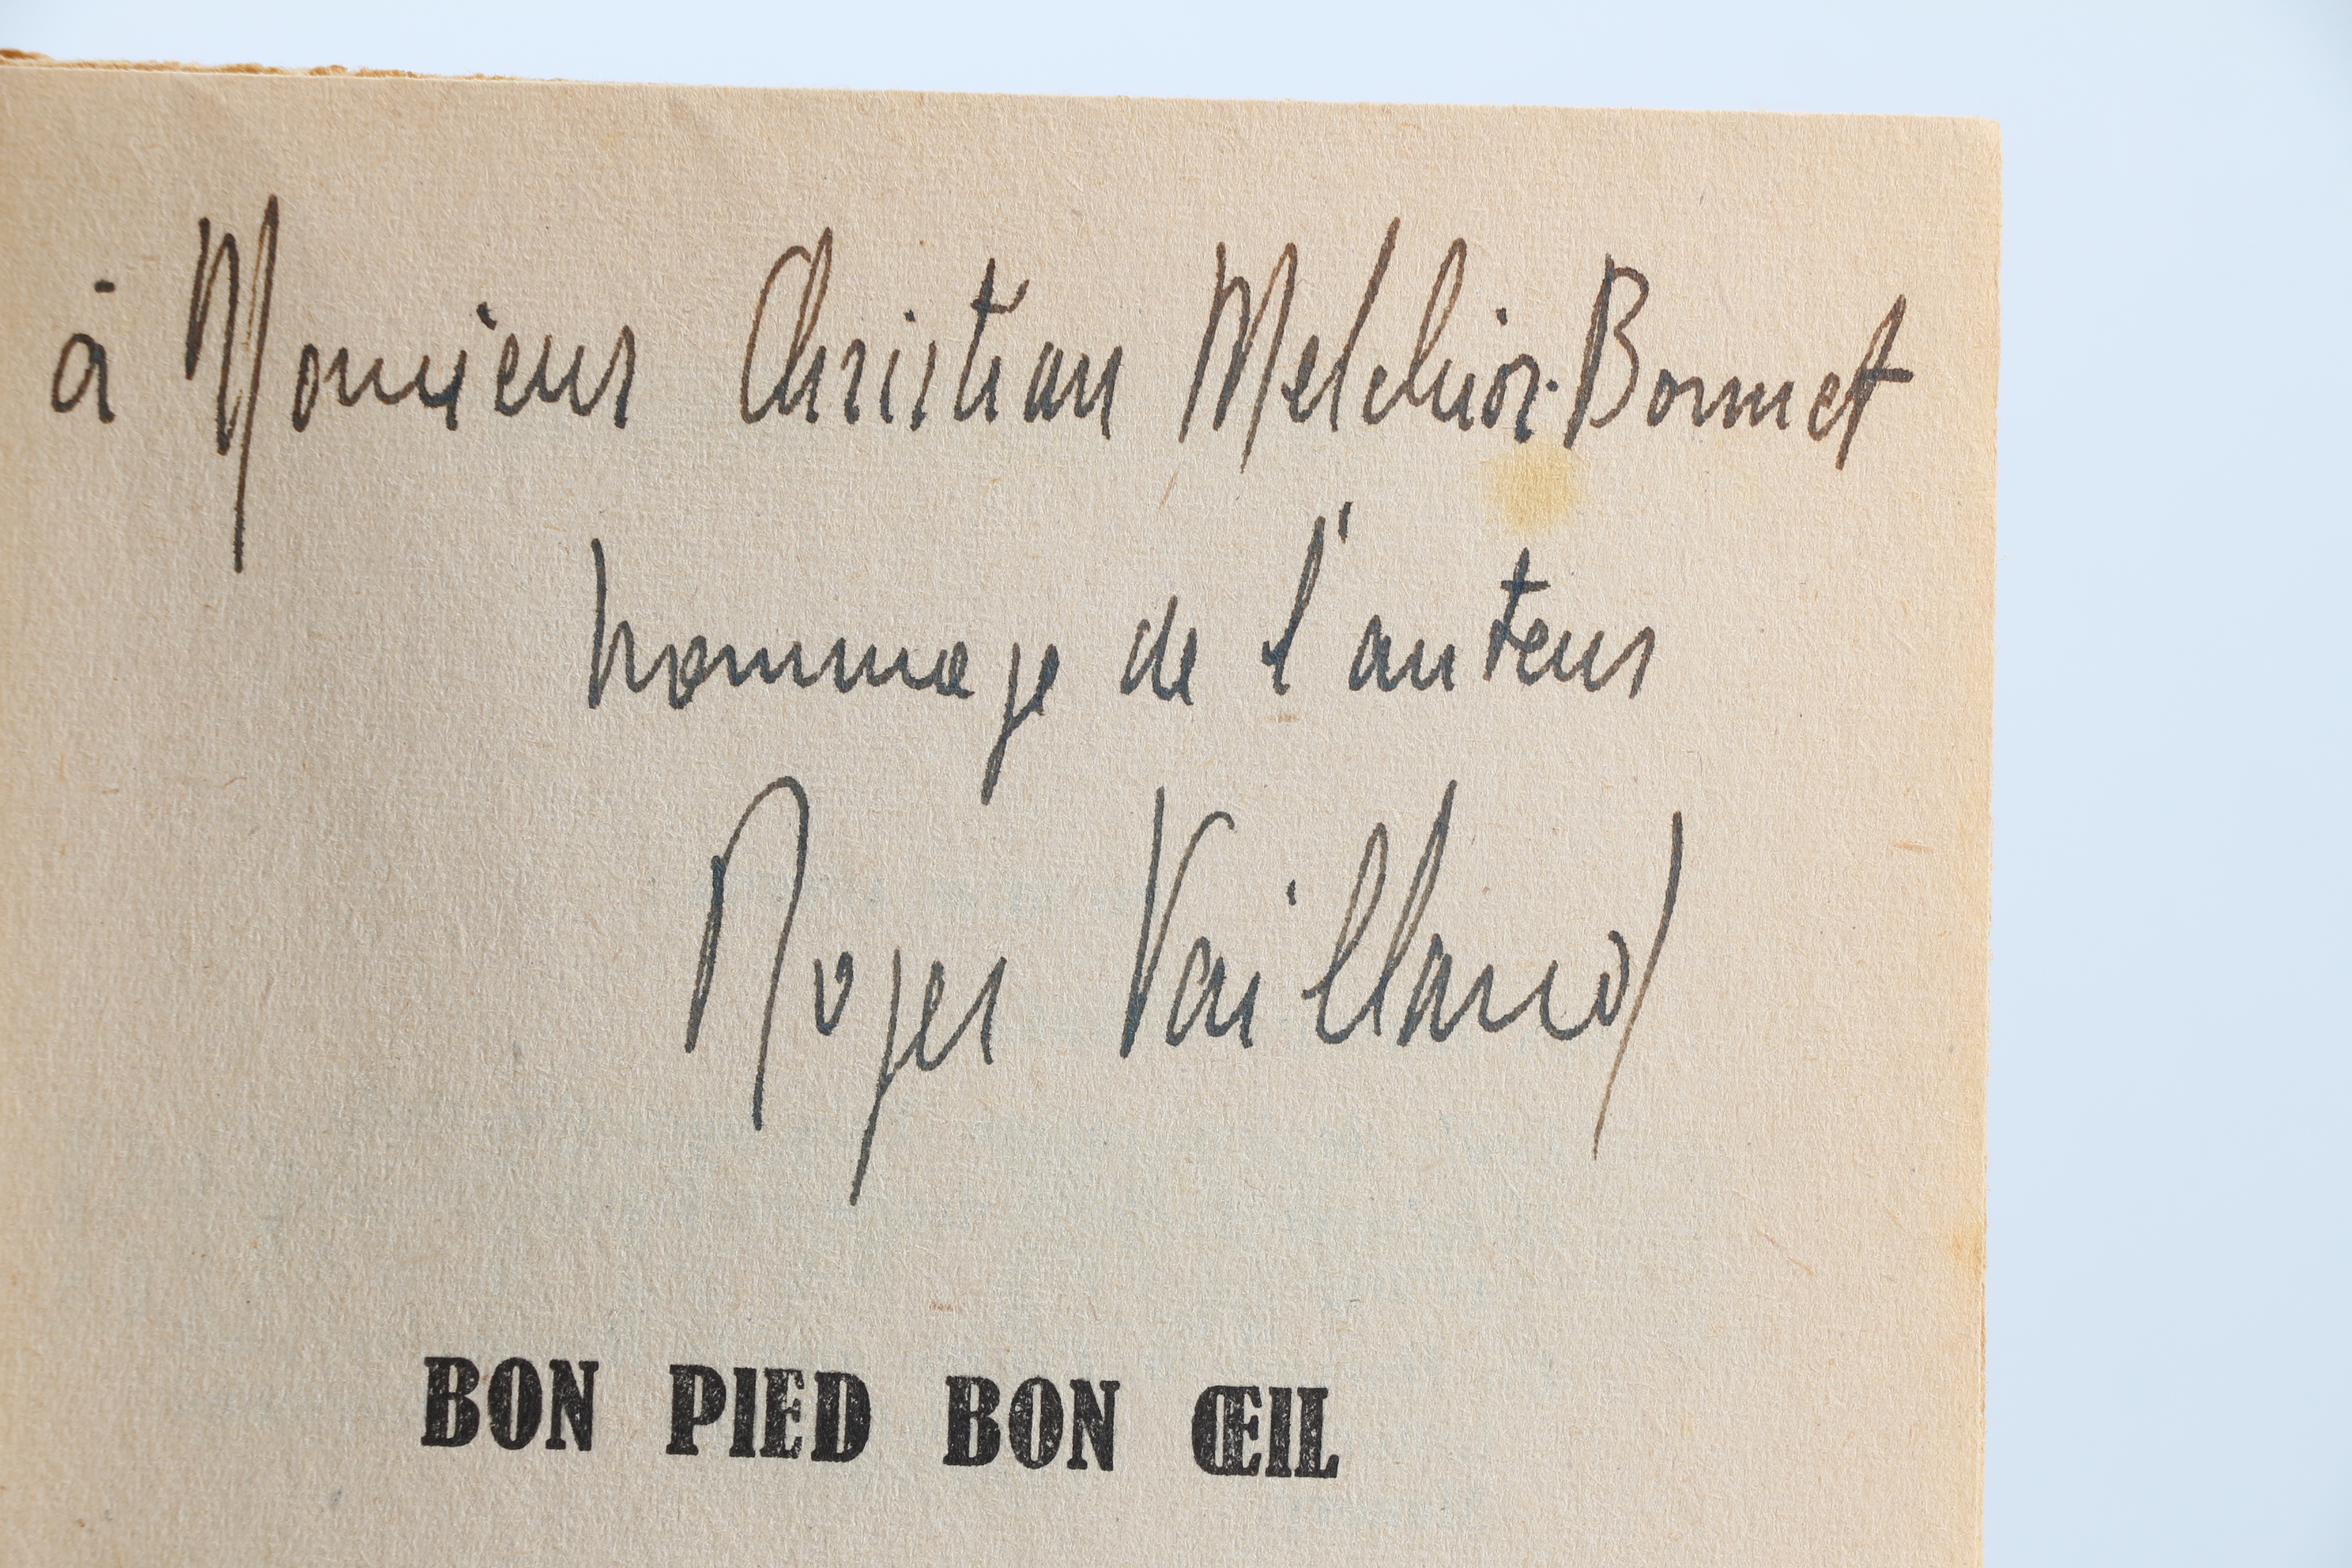 à Monsieur Christian Melchior-Bonnet
hommage de l'auteur
Roger Vailland
BON PIED BON ŒIL